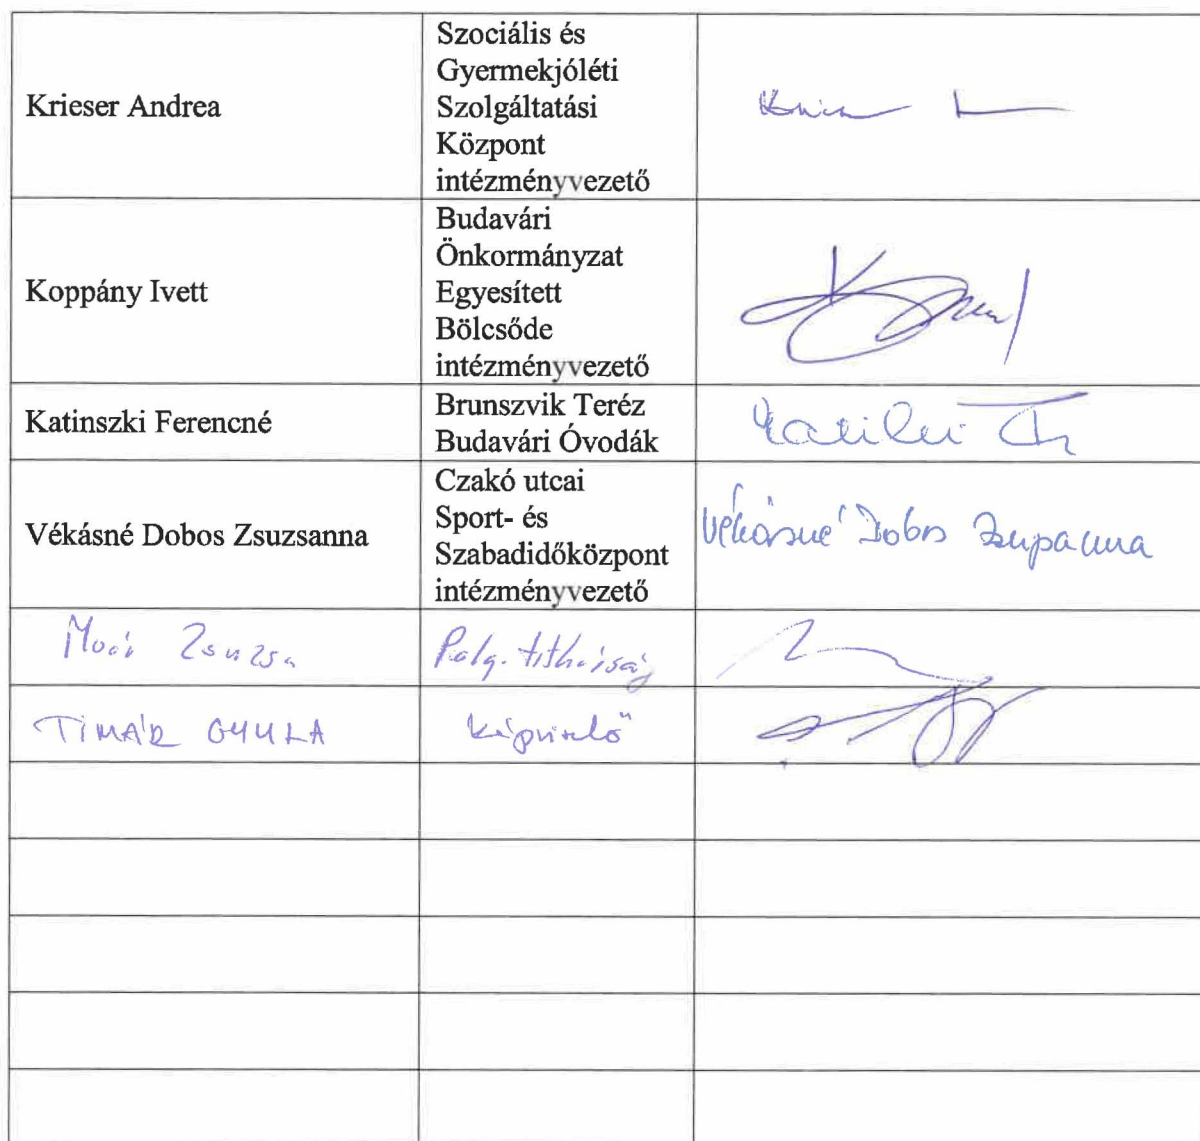 Krieser Andrea
Szociális és
Gyermekjóléti
Szolgáltatási
Központ
intézményvezető
Koppány Ivett
Budavári
Önkormányzat
Egyesített
Bölcsőde
intézményvezető
Katinszki Ferencné
Brunszvik Teréz
Budavári Óvodák
Vékásné Dobos Zsuzsanna
Czakó utcai
Sport- és
Szabadidőközpont
intézményvezető
Vékásné Dobos Zsuzsanna
Zsuzsa
Polg. titkárság
TIMÁR GYULA
képviselő